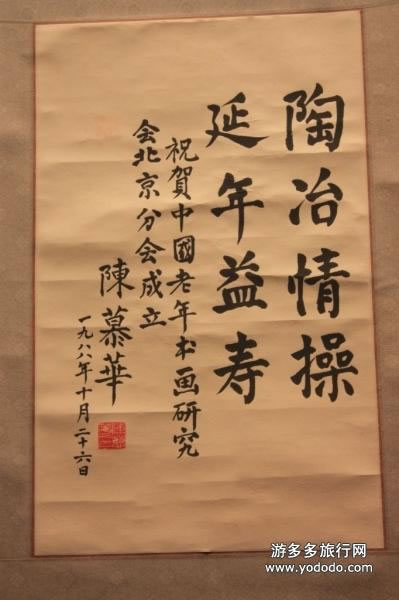 陶冶情操
延年益寿
祝賀中國老年书画研究
会北京分会成立
陳慕華
一九八八年十月二十六日
游多多旅行网
www.yododo.com